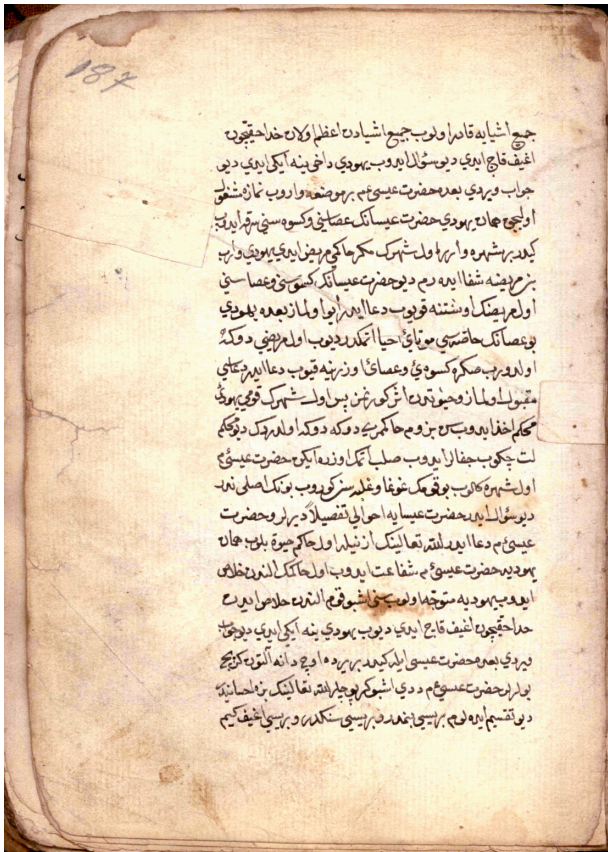 187
جميع اشيايه قادر اولوب جميع اشيادن اعظم اولان خدا حقيچون
اغيف قاج ايدي ديو سؤال ايدوب يهودي داخي ينه ايكي ايدي ديو
جواب ويردي بعده حضرت عيسى م بر موضعه واروب نمازه مشغول
اوليجق همان يهودي حضرت عيسانك عصاسني وكسوه سني سرقه ايدوب
كيدر بر شهره وارر اول شهرك مكر حاكمي مريض ايدي يهودي واروب
بن مريضه شفا ايده رم ديو حضرت عيسانك كسوسني وعصاسني
اول مريضك اوشتنه قويوب دعا ايدر ايو اولماز بعده يهودي
بو عصانك خاصه سي موتايئ احيا اتمكدر ديوب اول مريضي دوكه
اولدورب صكره كسوه يئ وعصايئ اوزرينه قيوب دعا ايدر دعاسي
مقبول اولماز وحيوتدن اثر كورنمن پس اول شهرك قومي يهودي
محكم اخذ ايدوب سن بزوم حاكمزي دوكه دوكه اولدردك ديو محكم
لت چكوب جفالر ايدوب صلب اتمك اوزره ايكن حضرت عيسى م
اول شهره كلوب بو قومك غوغا وغلبه سن كوروب بونك اصلي ندر
ديو سؤال ايدر حضرت عيسايه احوالي تفصيلاً ديرلر وحضرت
عيسى م دعا ايدر الله تعالينك ازنيله اول حاكم حيوة بلوب همان
يهوديه حضرت عيسى م شفاعت ايدوب اول حاكمك الندن خلاص
ايدوب يهوديه متوجه اولوب سني اشبو قوم الندن خلاص ايدن
خدا حقيچون اغيف قاج ايدي ديوب يهودي ينه ايكي ايدي ديو جواب
ويردي بعده حضرت عيسى ايله كيدر بر يرده اوچ دانه آلتون كرپيج
بولرلر حضرت عيسى م ددي اشبو كرپيچلر الله تعالينك بزه احسانيدر
ديو تقسيم ايده لوم بريسي بنمدر وبريسي سنكدر وبريسي اغيف كيم